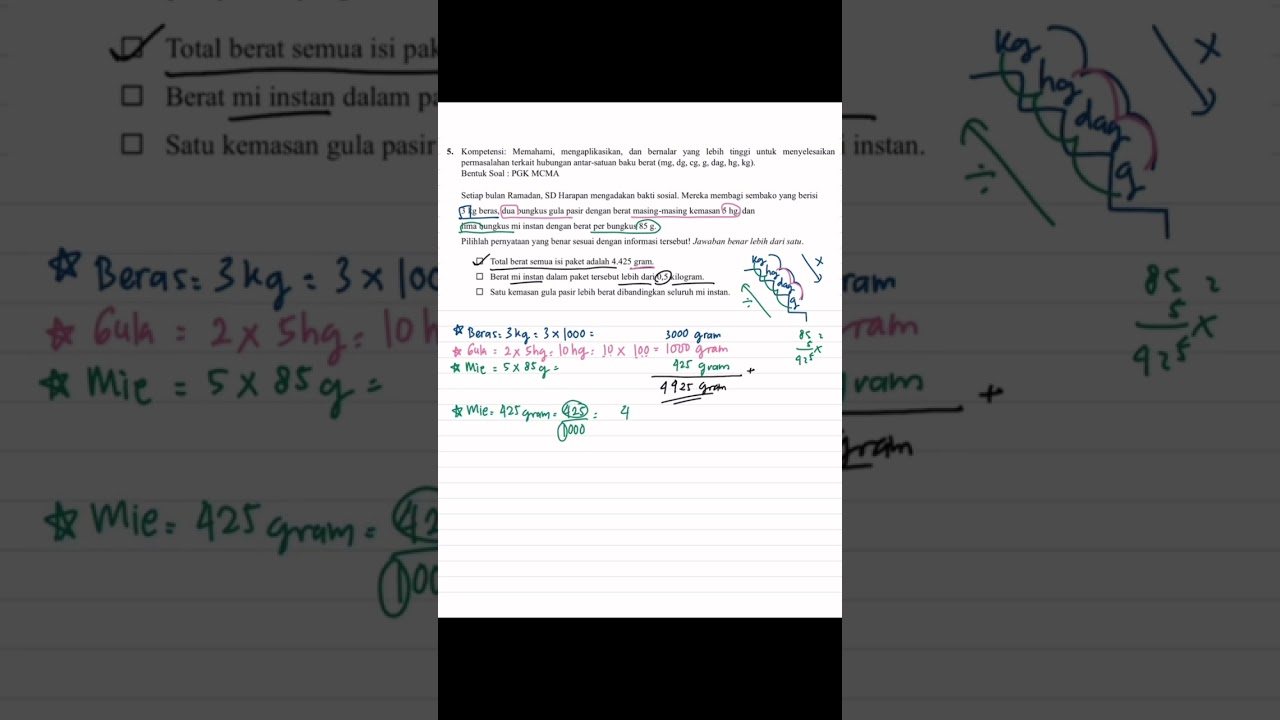 5. Kompetensi: Memahami, mengaplikasikan, dan bernalar yang lebih tinggi untuk menyelesaikan
permasalahan terkait hubungan antar-satuan baku berat (mg, dg, cg, g, dag, hg, kg).
Bentuk Soal : PGK MCMA
Setiap bulan Ramadan, SD Harapan mengadakan bakti sosial. Mereka membagi sembako yang berisi
3 kg beras, dua bungkus gula pasir dengan berat masing-masing kemasan 5 hg, dan
lima bungkus mi instan dengan berat per bungkus 85 g.
Pilihlah pernyataan yang benar sesuai dengan informasi tersebut! Jawaban benar lebih dari satu.
Total berat semua isi paket adalah 4.425 gram.
Berat mi instan dalam paket tersebut lebih dari 0,5 kilogram.
Satu kemasan gula pasir lebih berat dibandingkan seluruh mi instan.
kg
hg
dag
g
x
÷
Beras = 3 kg = 3 x 1000 = 3000 gram
Gula = 2 x 5 hg = 10 hg = 10 x 100 = 1000 gram
Mie = 5 x 85 g = 425 gram +
4425 gram
85
5 x
425
Mie = 425 gram = 425 = 4
1000
Total berat semua isi pak
Berat mi instan dalam pa
Satu kemasan gula pasir
instan.
kg
hg
dag
g
x
÷
Beras = 3 kg = 3 x 100
Gula = 2 x 5 hg = 10 h
Mie = 5 x 85 g =
ram
ram
gram
+
gram
85
5 x
425
Mie = 425 gram = 42
100